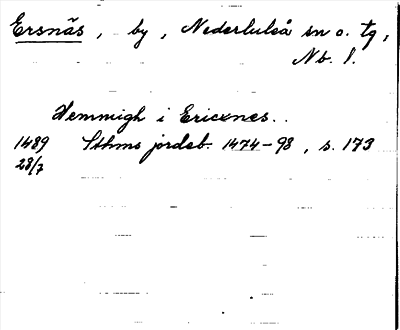 Ersnäs, by, Nederluleå sn o. tg,
Nb. l.
Hemmigh i Ericxnes..
1489 Sthms jordeb. 1474-98, s. 173
28/7